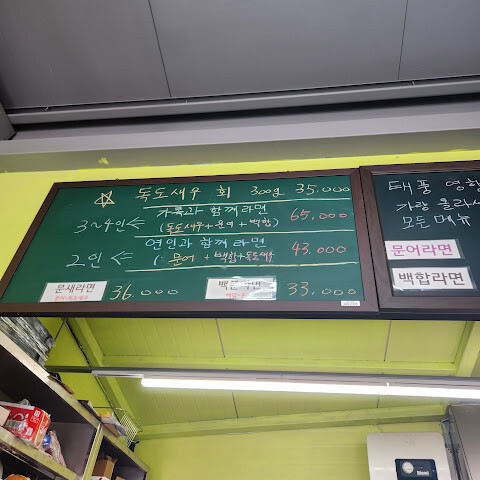 독도새우 회 300g 35.000
가족과 함께라면
3~4인 65.000
(독도새우+문어+백합)
연인과 함께라면
2인 43.000
(문어+백합+독도새우
문새라면 36.000
33.000
태풍 영향
모든 메뉴
문어라면
백합라면
Rinnai